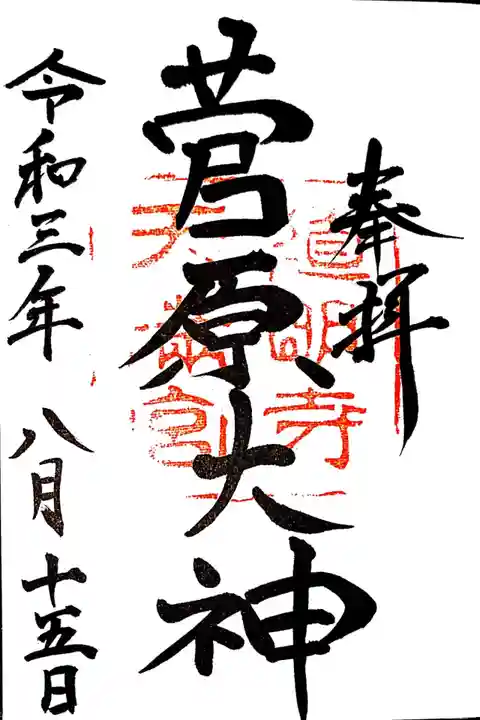 奉拝
菅原大神
道明寺
天満宮
令和三年 八月十五日